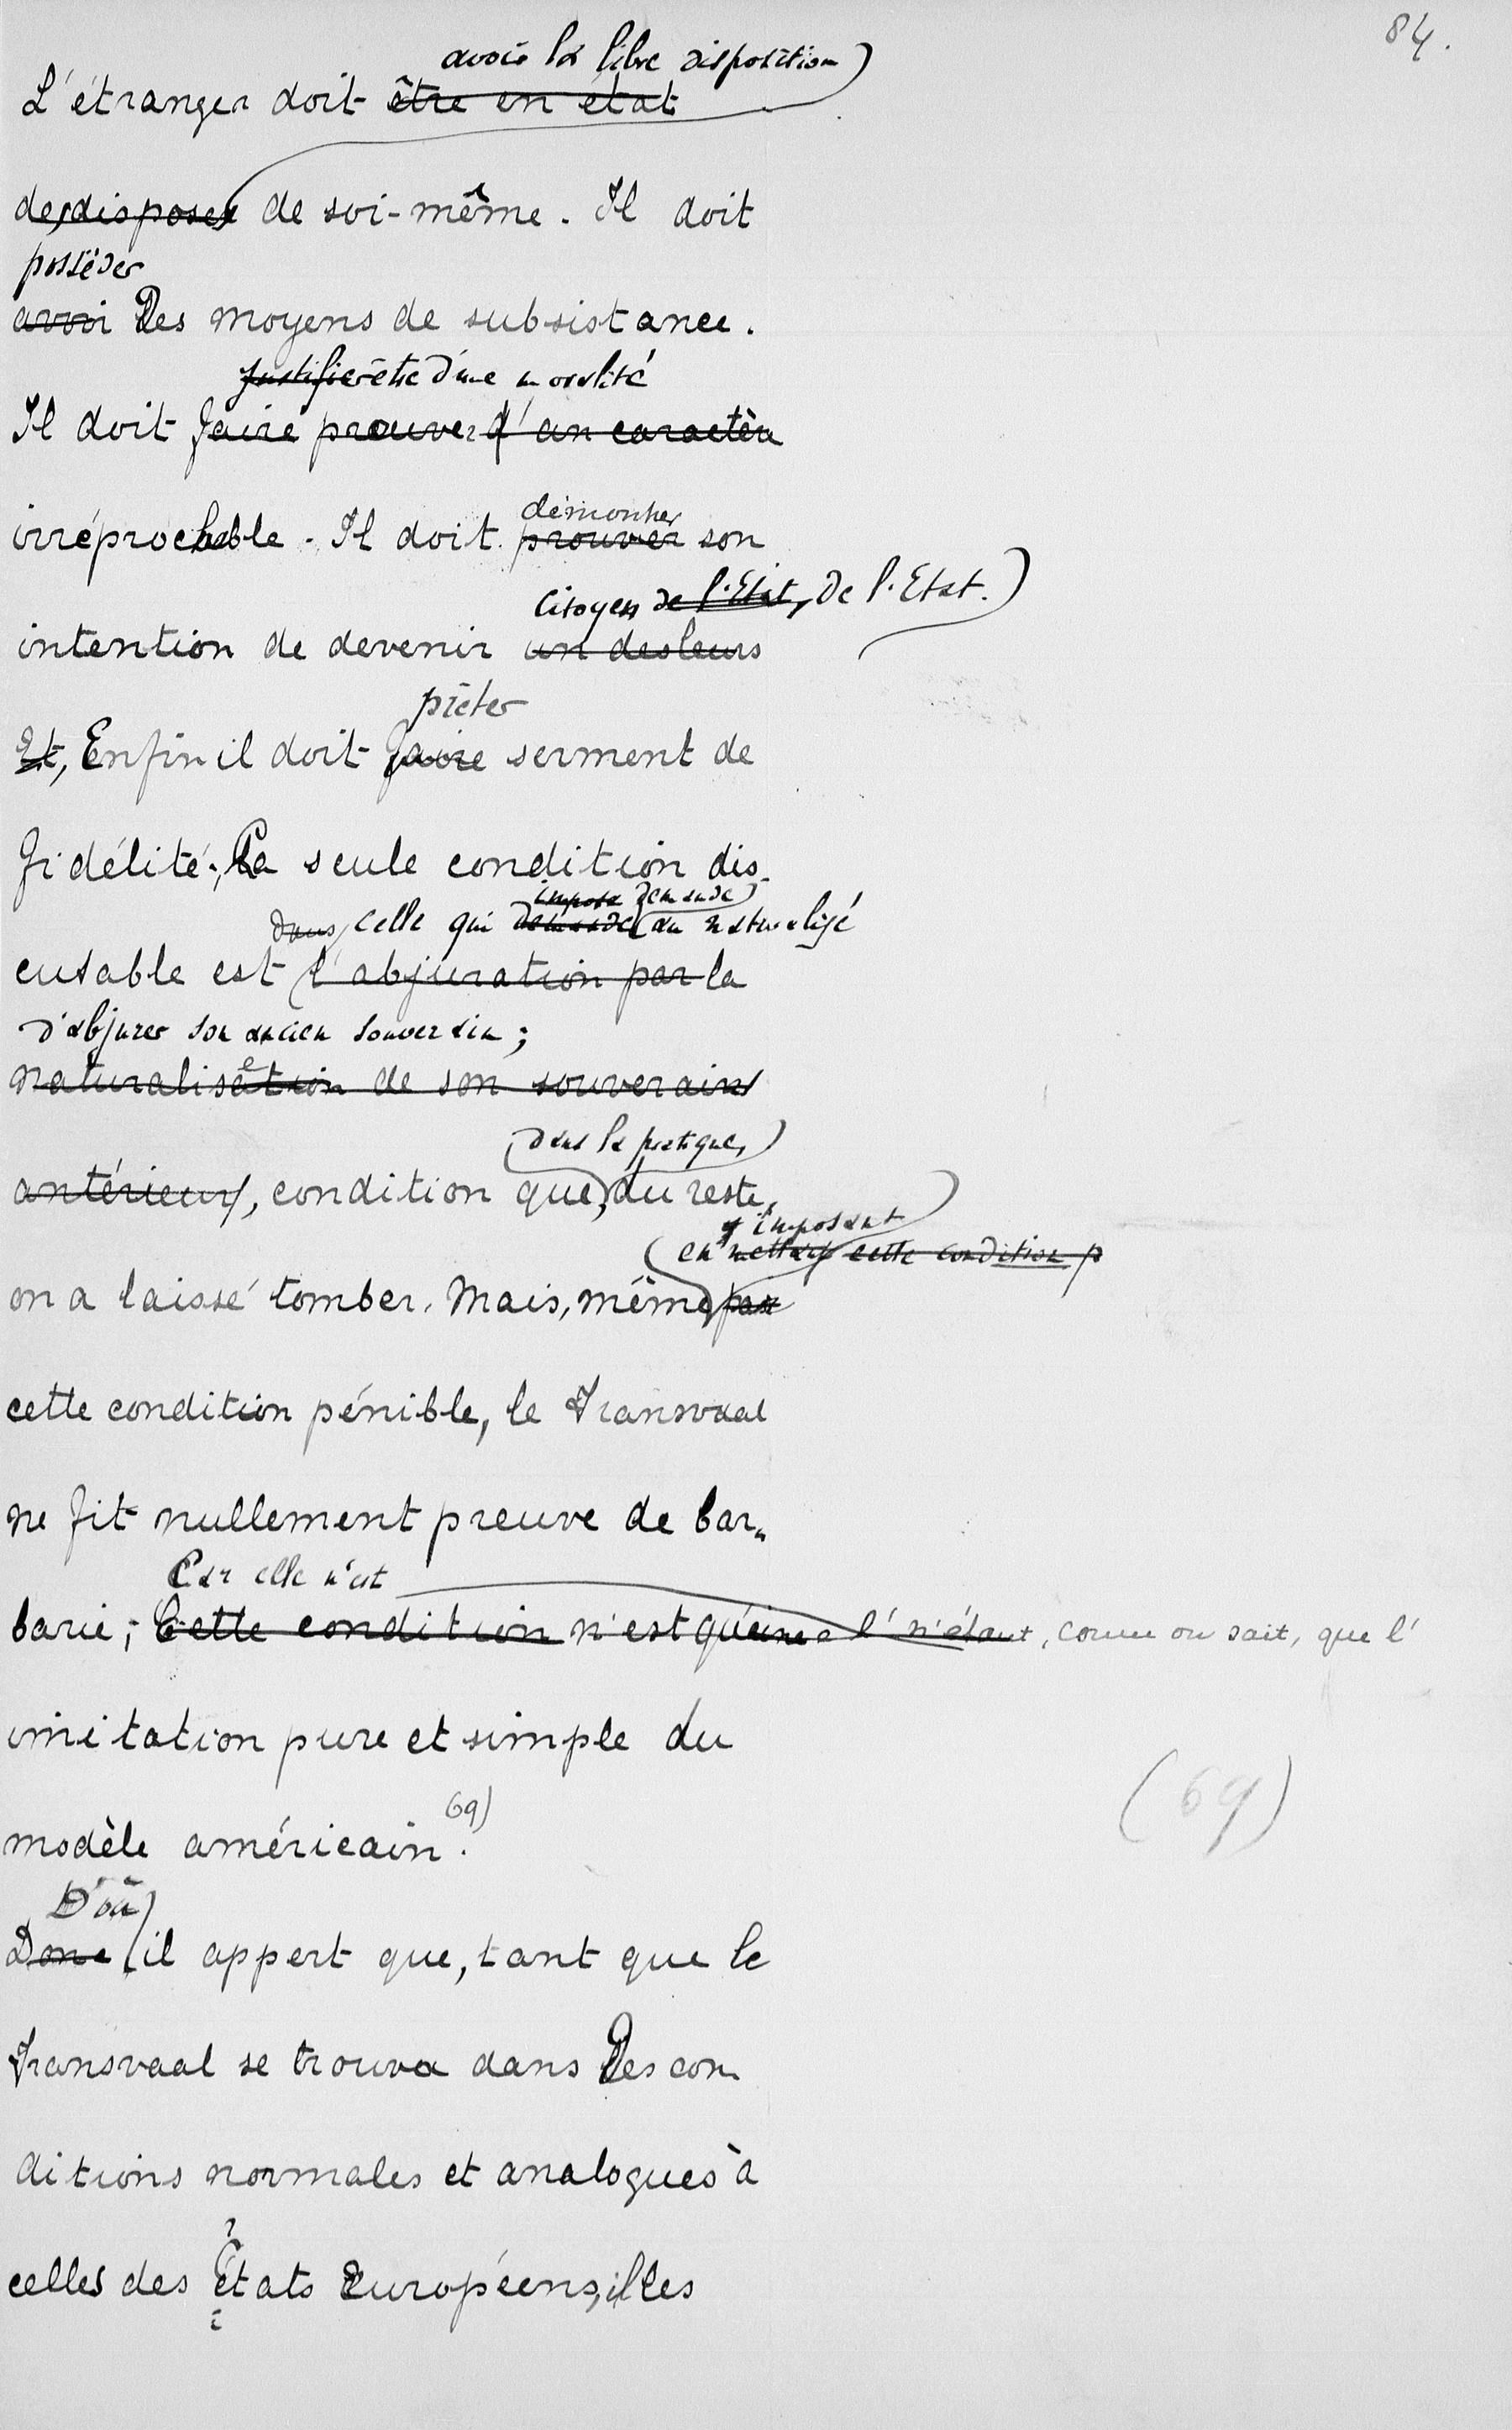 84.
avoir la libre disposition)
L'étranger doit être en état
de disposer de soi-même. Il doit
posséder
avoir des moyens de subsistance.
justifier être d'une moralité
Il doit faire prouver d'un caractère
irréprochable. Il doit prouver son
démontrer
citoyen de l'Etat, de l'Etat.)
intention de devenir un des leurs
prêter
Et, Enfin il doit faire serment de
fidélité; La seule condition dis-
impose demande)
dans celle qui demande au naturalisé
cutable est l'abjuration par la
d'abjurer son ancien souverain;
naturalisation de son souverain
(dans la pratique,)
antérieur, condition que, du reste,
imposant
en mettant cette condition p
on a laissé tomber. Mais, même par
cette condition pénible, le Transvaal
ne fit nullement preuve de bar-
Car elle n'est
barie; Cette condition n'est qu'une l' n'étant, comme on sait, que l'
imitation pure et simple du
69)
modèle américain.
(69)
D'où)
Donc il appert que, tant que le
Transvaal se trouva dans des con-
ditions normales et analogues à
celles des Etats Européens, il les